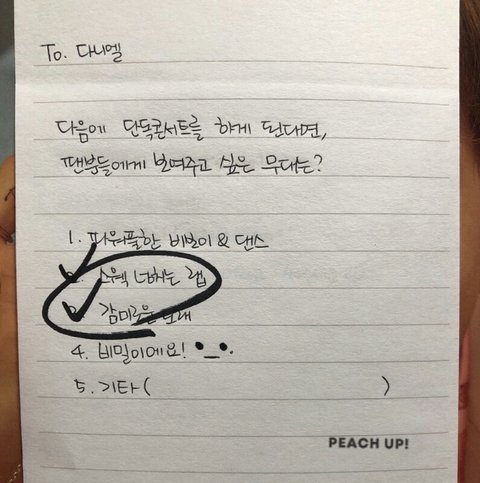 To. 다니엘
다음에 단독콘서트를 하게 된다면,
팬분들에게 보여주고 싶은 무대는?
1. 파워풀한 비보이 & 댄스
2. 스웩 넘치는 랩
3. 감미로운 노래
4. 비밀이에요! •_•.
5. 기타 ( )
PEACH UP!